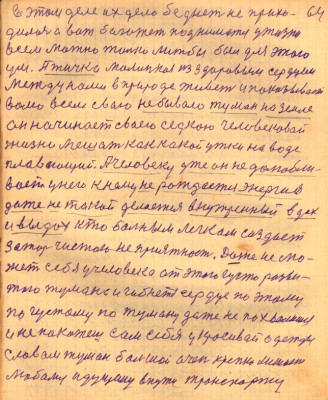 В этом деле их дело беднеет не прихо- 64
дилоя а вот богатеет поднимет у жизни
всем можно только лишь бы был для этого
ум. Птичка маленькая из здоровым сердцем
между нами в природе живет и показывает
Было всем свого небывало туман на земле
он начинает своею седкою человековой
жизни мешать как какой утки на воде
плавающий. А человеку уже он не
вает у него к нему не рождается энергия
даже не такой делается внутренный вдох
и выдох кто больным легкам создает
затор чистого неприятность. Даже не спо-
жет себя у человека от этого густо разви-
того туману и гибнет сердце по этому
по густому по туману даже не похвалился
и не покажеш сам себя у красивой одежды
словам туман большой очен крепко мешает
любому идущему в пути транспорту